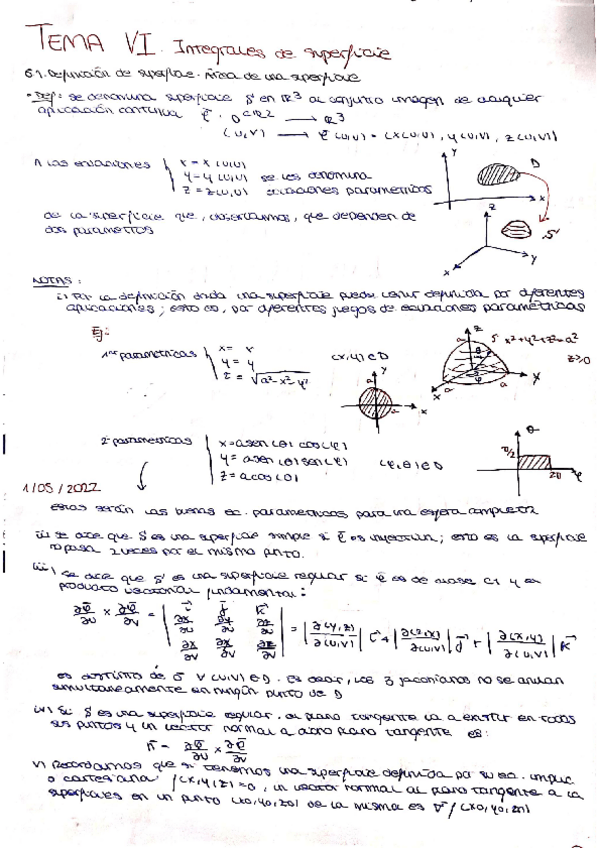 TEMA VI. Integrales de superficie
6.1. Definición de superficie. Área de una superficie
• Def: se denomina superficie S en ℝ³ al conjunto imagen de cualquier
aplicación continua φ: D⊂ℝ² → ℝ³
(u,v) → φ(u,v) = (x(u,v), y(u,v), z(u,v))
A las ecuaciones
x = x(u,v)
y = y(u,v) se les denomina
z = z(u,v) ecuaciones paramétricas
de la superficie que, observamos, que dependen de
dos parámetros
y
D
x
z
S
y
x
NOTAS:
i) Por la definición dada una superficie puede venir definida por diferentes
aplicaciones; esto es, por diferentes juegos de ecuaciones paramétricas
Ej:
1ª paramétricas
x = x
y = y
z = √a²-x²-y²
(x,y) ∈ D
y
a
a
x
z
a
S x²+y²+z²=a²
z≥0
θ
φ
a
y
a
x
2ª paramétricas
x = a sen(θ) cos(φ)
y = a sen(θ) sen(φ)
z = a cos(θ)
(φ,θ) ∈ D
θ
π/2
2π
φ
1/05/2022
estas serían las buenas ec. paramétricas para una esfera completa
ii) se dice que S es una superficie simple si φ es inyectiva; esto es la superficie
no pasa 2 veces por el mismo punto.
iii) se dice que S es una superficie regular si φ es de clase C1 y su
producto vectorial fundamental:
∂φ/∂u × ∂φ/∂v = | i j k ; ∂x/∂u ∂y/∂u ∂z/∂u ; ∂x/∂v ∂y/∂v ∂z/∂v | = |∂(y,z)/∂(u,v)| i + |∂(z,x)/∂(u,v)| j + |∂(x,y)/∂(u,v)| k
es distinto de 0 ∀(u,v) ∈ D. Es decir, los 3 jacobianos no se anulan
simultáneamente en ningún punto de D
iv) Si S es una superficie regular, el plano tangente va a existir en todos
sus puntos y un vector normal a dicho plano tangente es:
n = ∂φ/∂u × ∂φ/∂v
v) Recordamos que si tenemos una superficie definida por su ec. implic
o cartesiana f(x,y,z)=0, un vector normal al plano tangente a la
superficies en un punto (x0,y0,z0) de la misma es ∇f(x0,y0,z0)